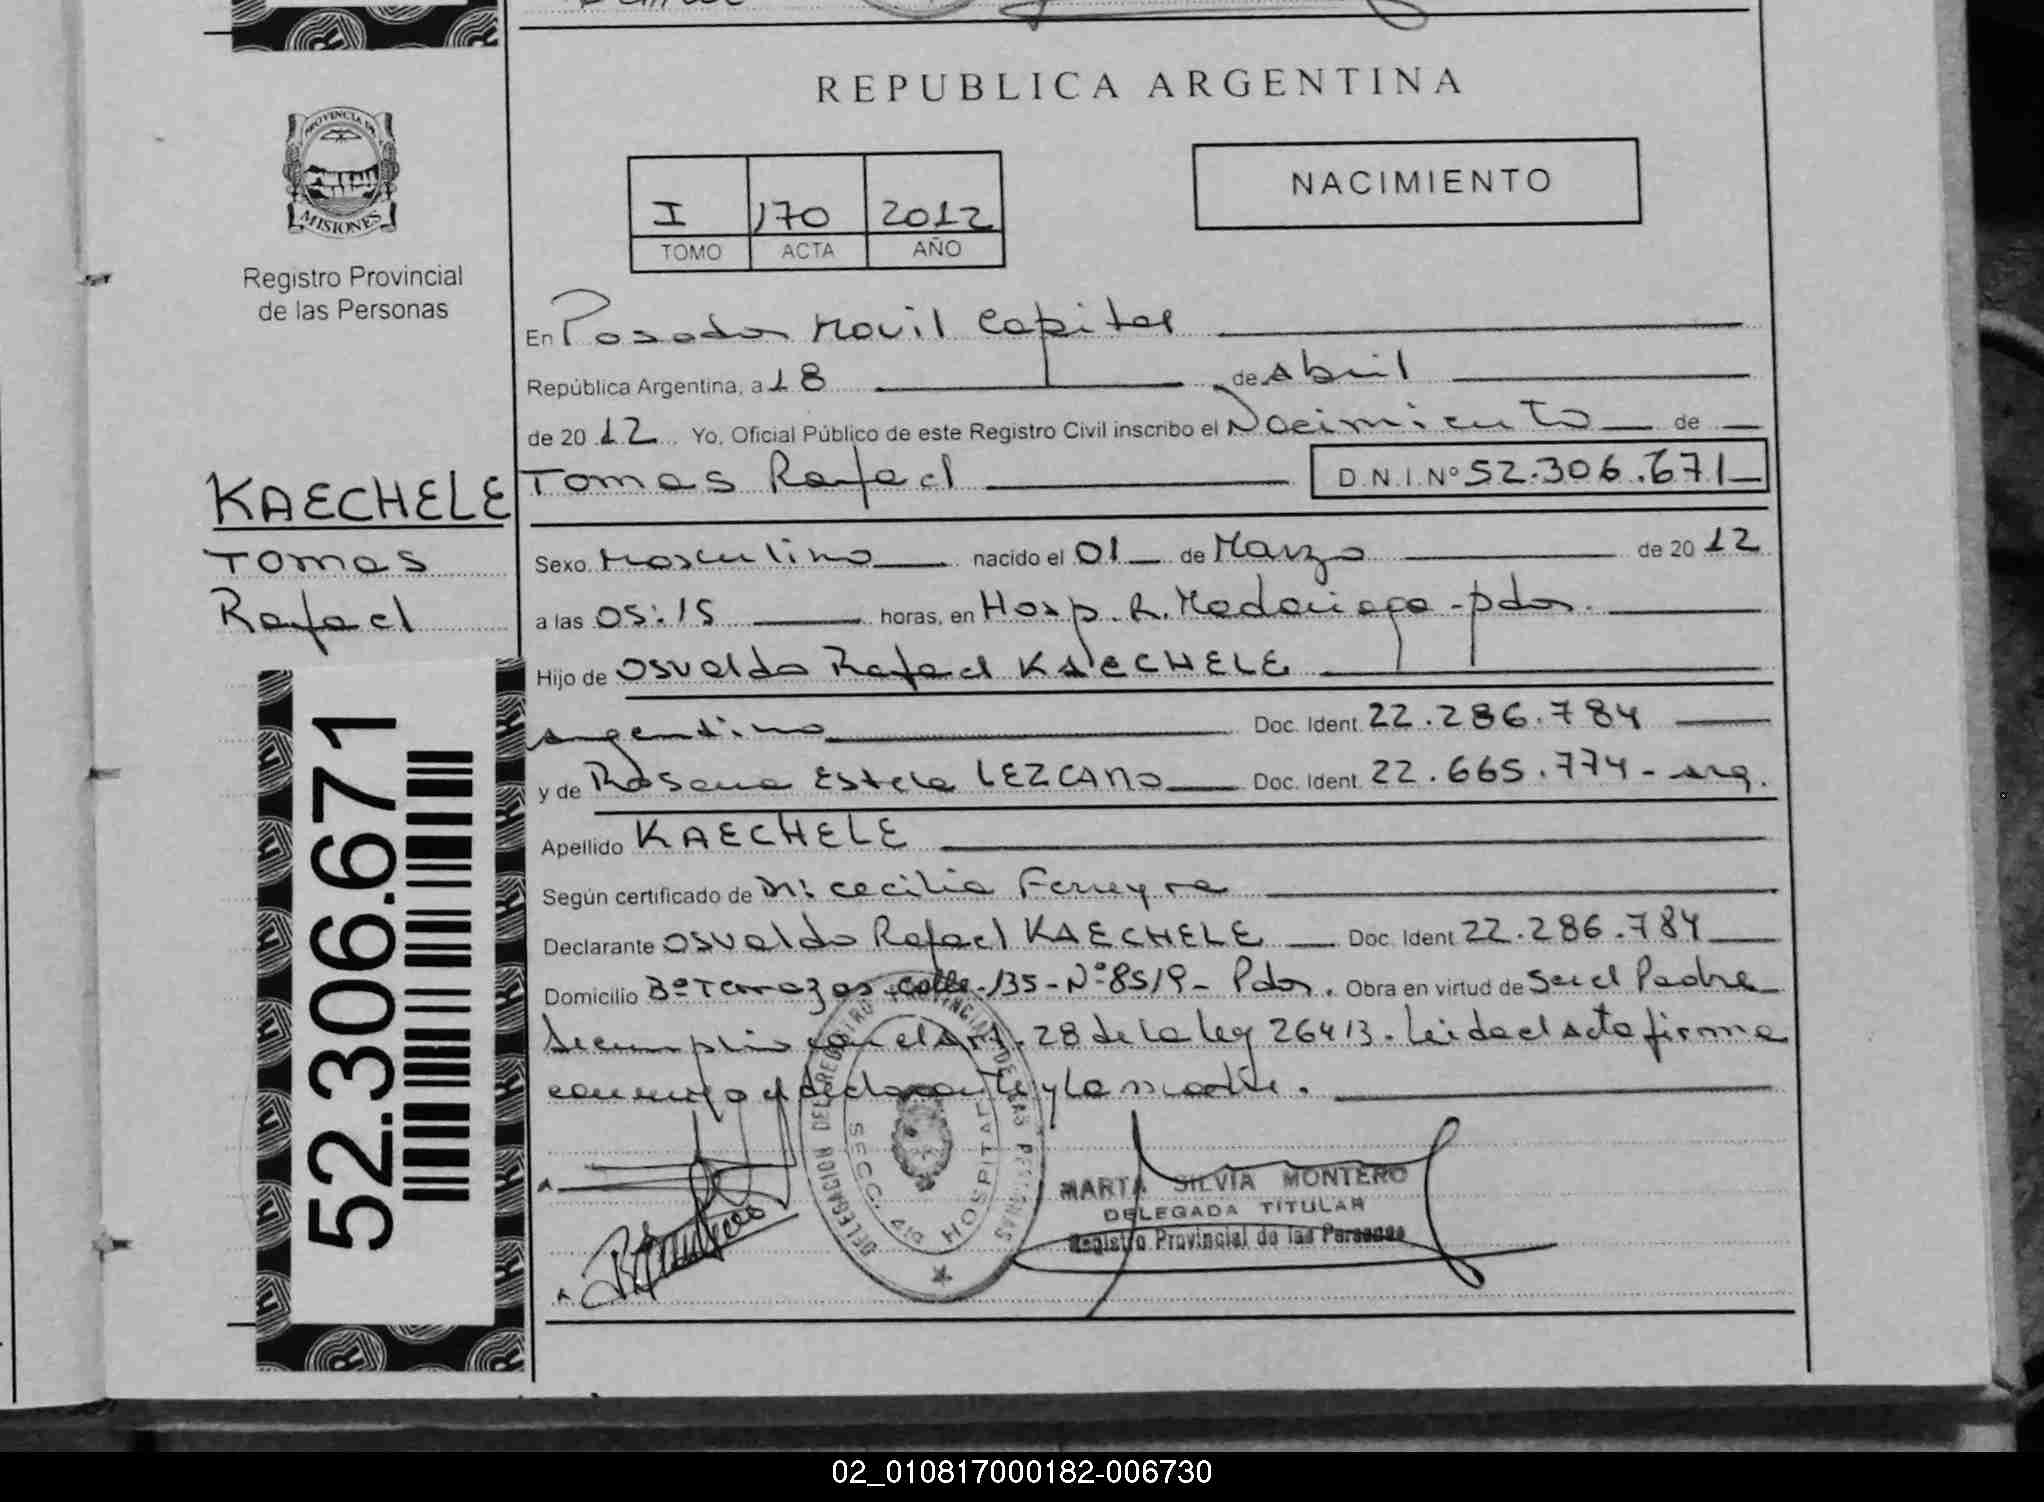 REPUBLICA ARGENTINA
PROVINCIA DE
MISIONES
Registro Provincial
de las Personas
NACIMIENTO
I 170 2012
TOMO ACTA AÑO
En Posadas Movil Capital
República Argentina, a 18 de Abril
de 2012 Yo, Oficial Público de este Registro Civil inscribo el Nacimiento de
KAECHELE
Tomas
Rafael
Tomas Rafael D.N.I. Nº 52.306.671
Sexo Masculino nacido el 01 de Marzo de 2012
a las 05:15 horas, en Hosp. R. Madariaga - pdas.
Hijo de Osvaldo Rafael KAECHELE
argentino Doc. Ident. 22.286.784
y de Rosana Estela LEZCANO Doc. Ident. 22.665.774 - arg.
Apellido KAECHELE
Según certificado de Dr: Cecilia Ferreyra
Declarante Osvaldo Rafael KAECHELE Doc. Ident 22.286.784
Domicilio Bº Terrazas calle 135 - Nº 8519 - Pdas. Obra en virtud de Ser el Padre
Se cumplio con el Art. 28 de la ley 26413. Leida el Acta firma
conmigo el declarante y la madre.
52.306.671
DELEGACION DEL REGISTRO PROVINCIAL DE LAS PERSONAS
SECC. 4ta HOSPITAL
MARTA SILVIA MONTERO
DELEGADA TITULAR
Registro Provincial de las Personas
02_010817000182-006730